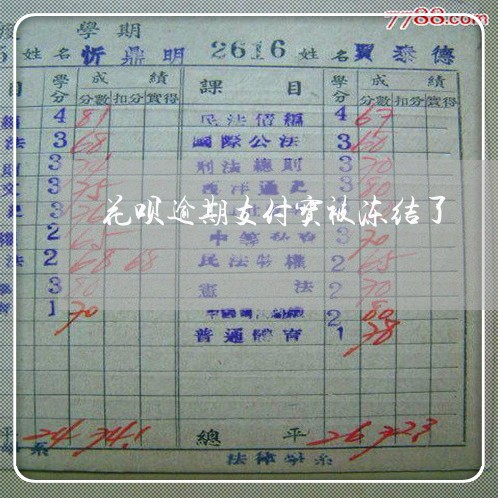 7788.com
學期
姓名 忻鼎明 2616 姓名 賈泰德
目 學分 成績 課目 學分 成績
分數 扣分 實得 分數 扣分 實得
4 81 民法債編 4 67
法 3 68 國際公法 3 60
3 刑法總則 3 70
3 75 西洋通史 3 80
花呗逾期支付宝被冻结了
2 65 3 70
法 2 68 68 民法物權 2 65
3 80 憲法 2 70
1 70 2 80
普通體育 1 78
平 24 74.1 總平 26 72.3
系 法律學系